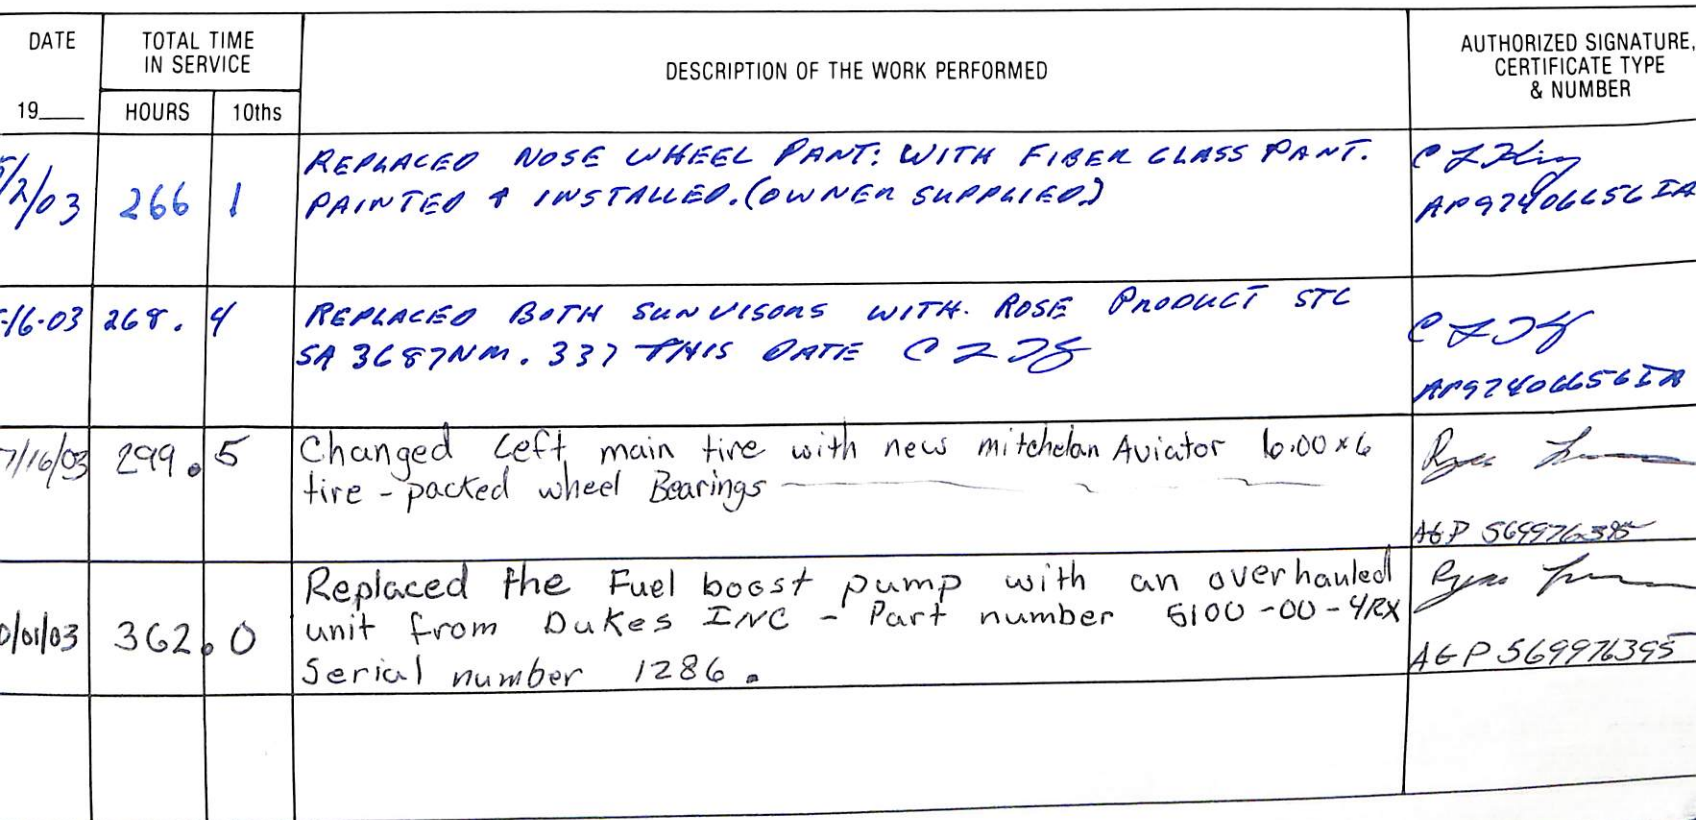 DATE
TOTAL TIME
IN SERVICE
DESCRIPTION OF THE WORK PERFORMED
AUTHORIZED SIGNATURE,
CERTIFICATE TYPE
& NUMBER
19
HOURS
10ths
5/2/03
266 1
REPLACED NOSE WHEEL PANT: WITH FIBER GLASS PANT.
PAINTED & INSTALLED. (OWNER SUPPLIED)
AP92406656IA
-16-03
268. 4
REPLACED BOTH SUN VISORS WITH. ROSE PRODUCT STC
SA 3687NM. 337 THIS DATE
AP92406656IA
7/16/03
299.5
Changed Left main tire with new mitchelan Aviator 6.00x6
tire - packed wheel Bearings
A&P 569976395
0/01/03
362.0
Replaced the Fuel boost pump with an overhauled
unit from Dukes INC - Part number 5100-00-4RX
Serial number 1286.
A&P 569976395